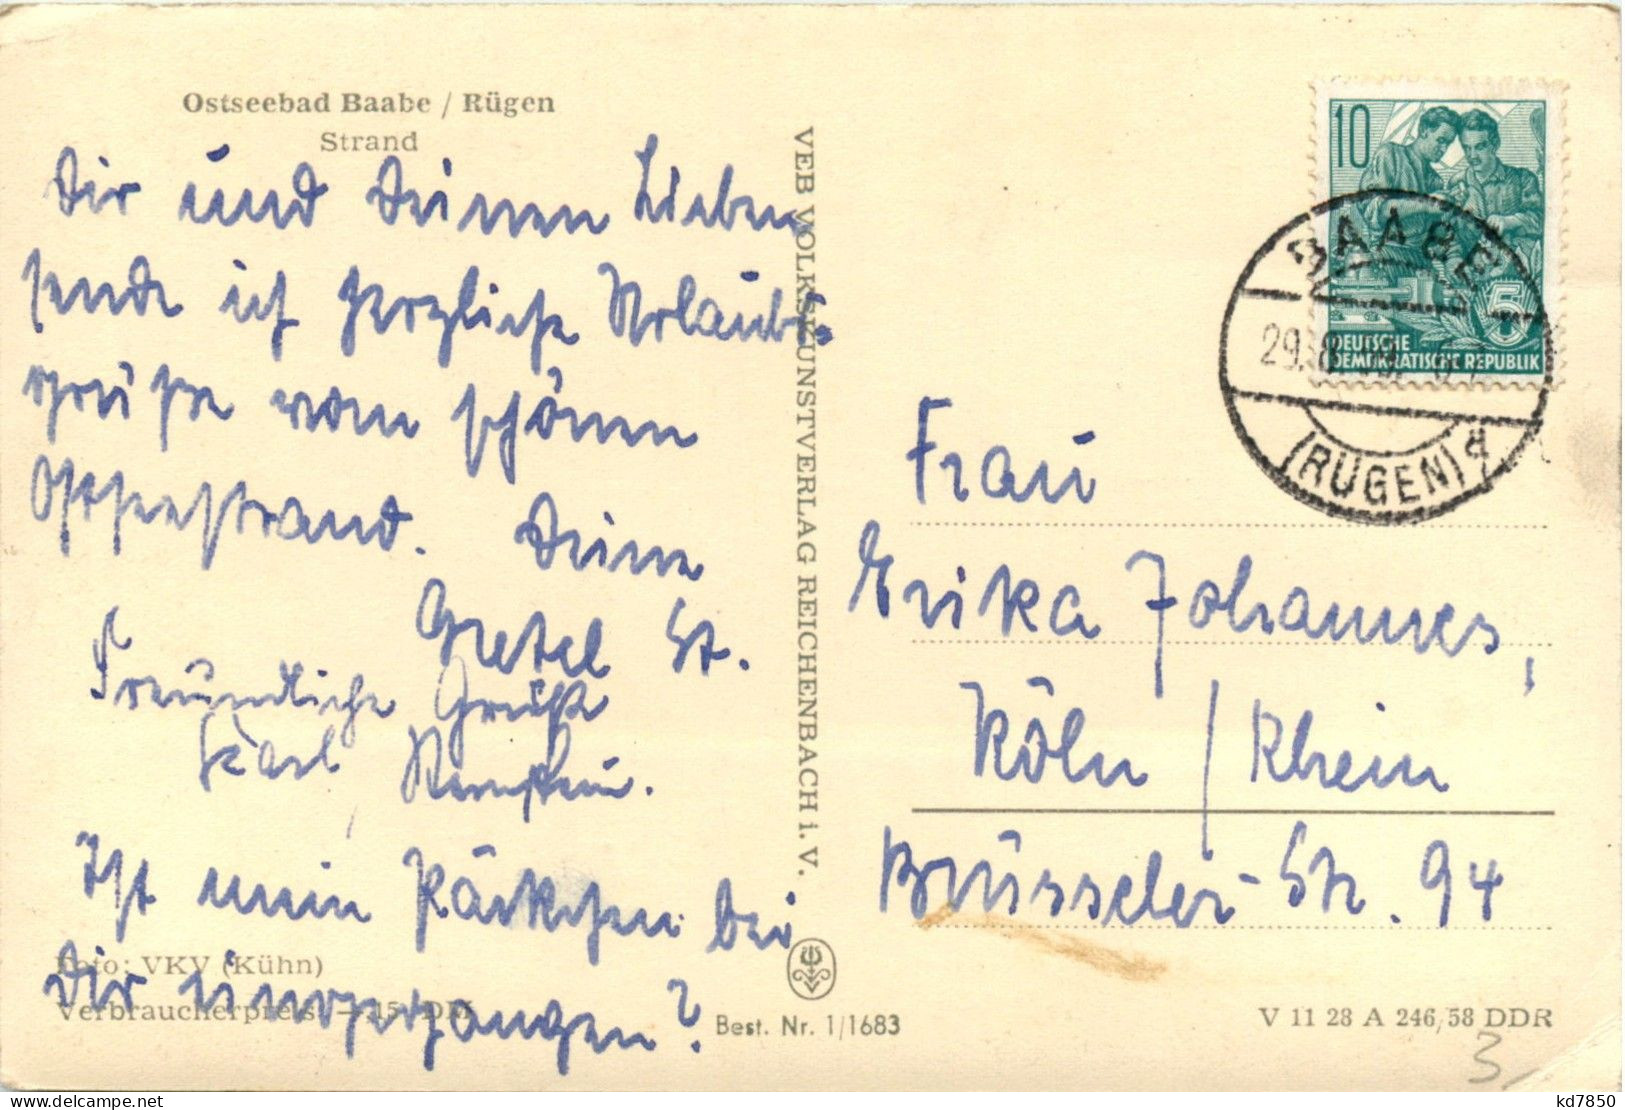 Ostseebad Baabe / Rügen
Strand
Dir und Deinen Lieben
sende ich herzliche Urlaubs-
grüße vom schönen
Ostseestrand. Deine
Gretel St.
Freundliche Grüße
Karl
Ist mein Päckchen bei
Dir eingegangen?
Foto: VKV (Kühn)
Verbraucherpreis: -,15 DM
VEB VOLKSKUNSTVERLAG REICHENBACH i. V.
Best. Nr. 1/1683
10
DEUTSCHE
DEMOKRATISCHE REPUBLIK
5
BAABE
29.8.
(RÜGEN) d
Frau
Erika Johannes,
Köln / Rhein
Brüsseler-Str. 94
V 11 28 A 246/58 DDR
3
kd7850